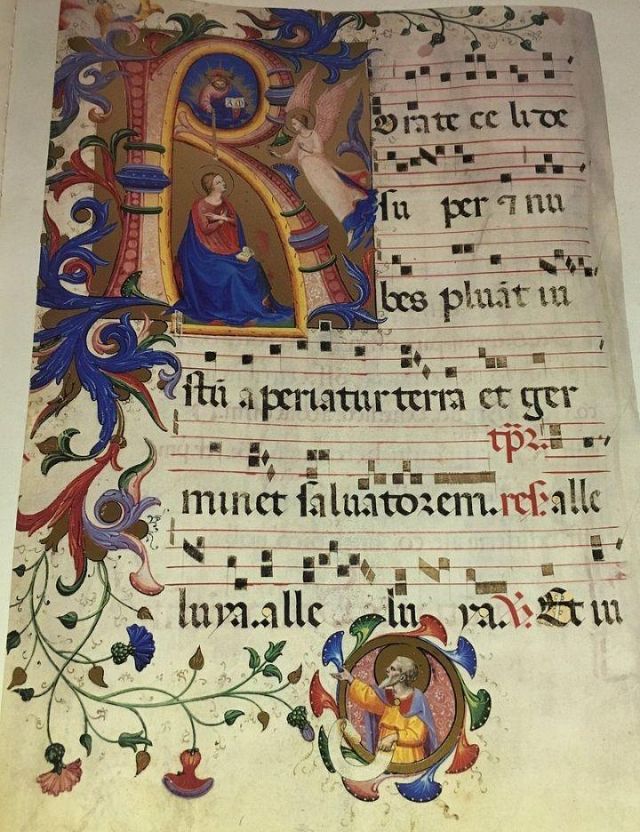 Rorate celi de
su per ⁊ nu
bes pluāt iu
stū aperiatur terra et ger
tp̄r.
minet saluatorem. res: alle
luya. alle lu ya ℣. Et iu